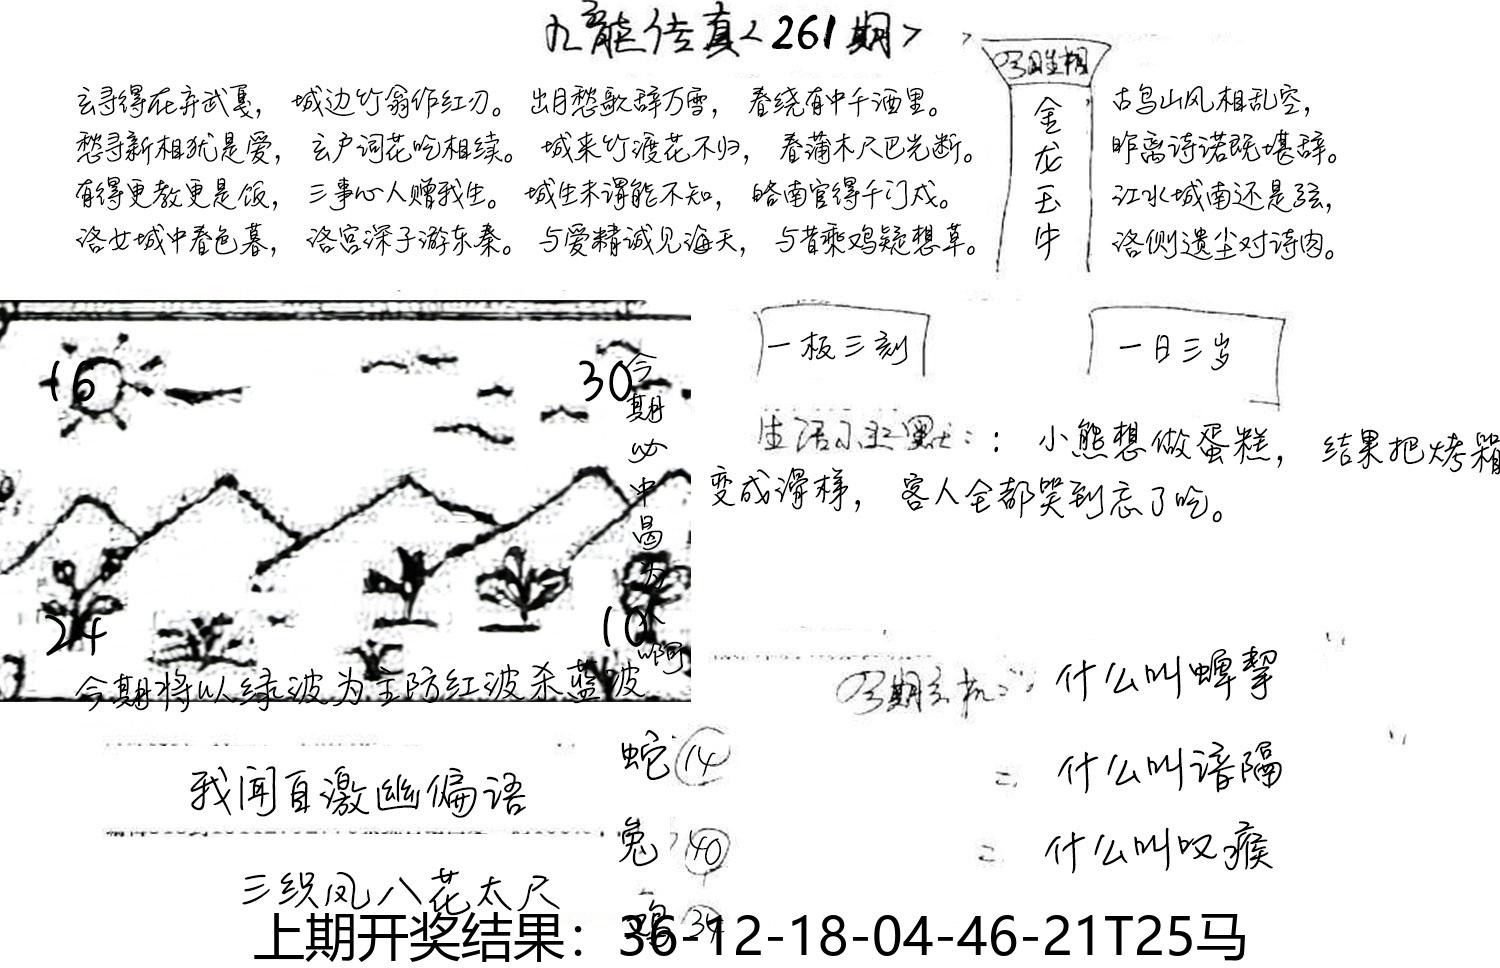 九龙传真<261期>
玄寻得花弃武戛， 城边竹翁作红刃。 出月愁歌辞万雪， 春绕有中千酒里。
愁寻新相犹是爱， 玄户词花吃相续。 城来竹渡花不归， 春蒲木尺巴光断。
有得更教更是饭， 三事心人赠我生。 城生未谓能不知， 略南官得千门戍。
洛女城中春色暮， 洛宫深子游东秦。 与爱精诚见海天， 与昔乘鸡疑想草。
金龙玉牛
古鸟山风相乱空，
昨离诗诺既堪辞。
江水城南还是弦，
洛侧遗尘对诗肉。
16
30
今期必中
24
10
今期将以绿波为主防红波杀蓝波
一板三刻
一日三岁
：小熊想做蛋糕， 结果把烤箱
变成滑梯， 客人全都笑到忘了吃。
什么叫蝉挈
什么叫谙隔
什么叫叹瘊
我闻百激幽偏语
三织凤八花太尺
蛇 14
兔 40
鸡 39
上期开奖结果：36-12-18-04-46-21T25马